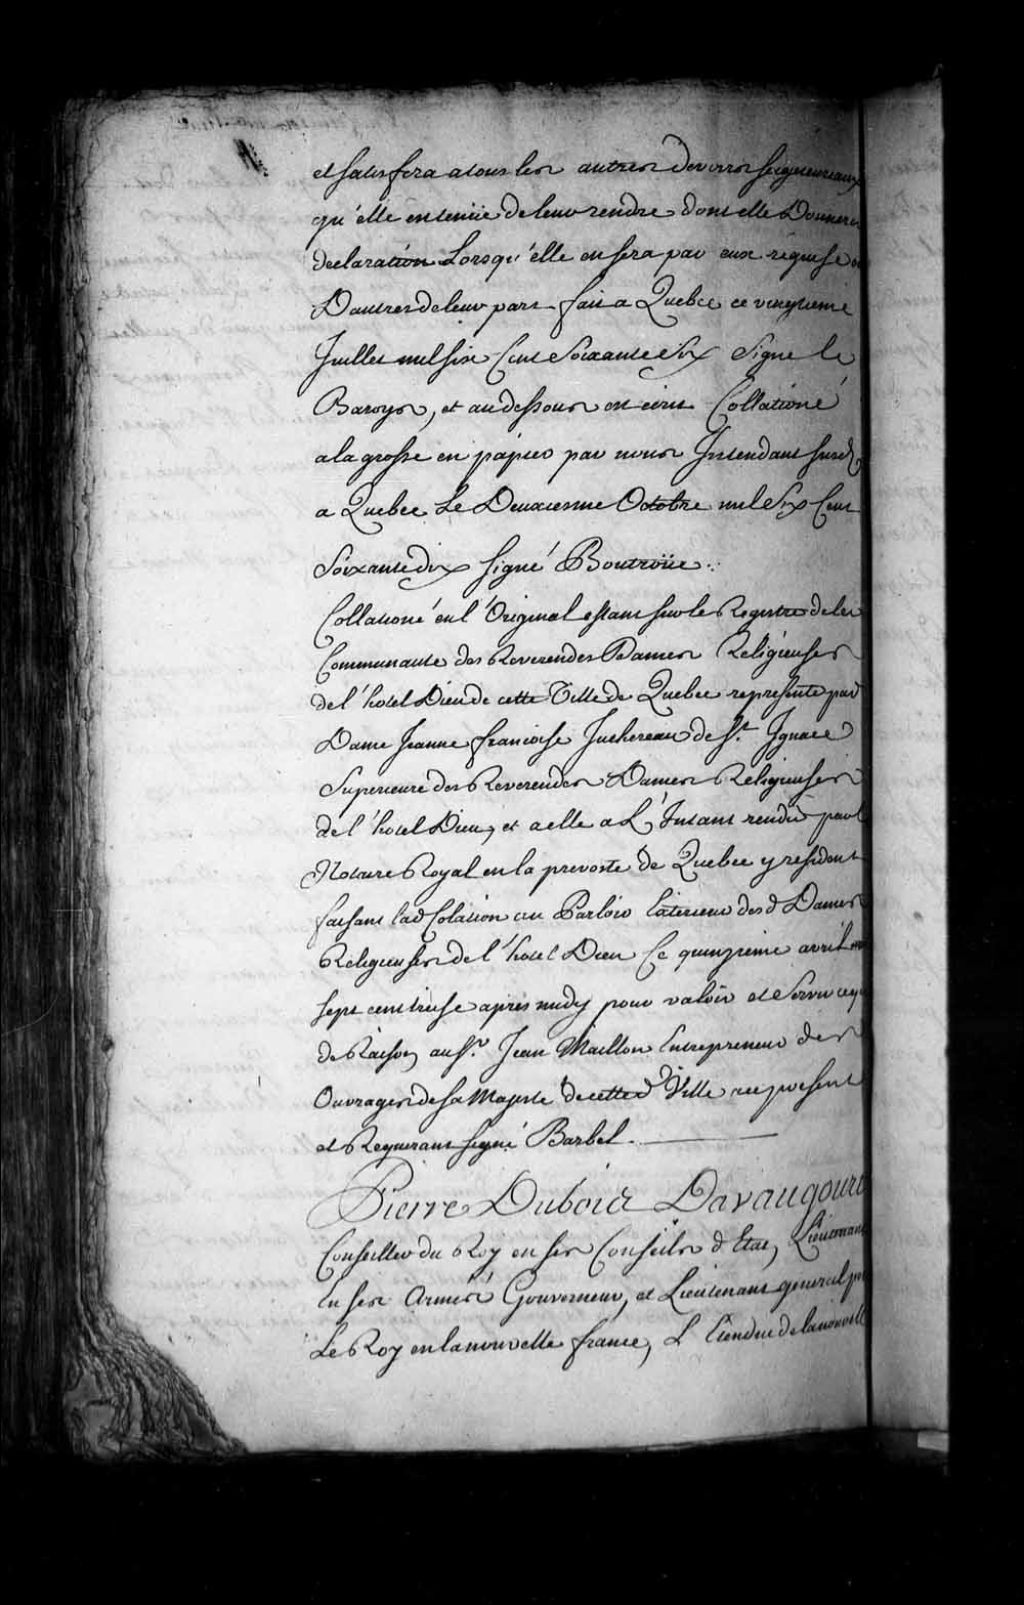 et satisfera a tous les autres devoirs seigneuriaux
qu'elle en tenüe de leur rendre dont elle Donnera
declaration Lorsqu'elle en sera par eux requise
Dautres de leur part fait a Quebec ce vingtieme
Juillet mil six Cent Soixante Six Signe le
Baroys, et au dessous est écrit Collationé
a la grosse en papier par nous Intendant susd.
a Quebec Le Deuxiesme Octobre mil Six Cent
Soixante dix signé Boutroüe.
Collationé en l'Original estant sur le Registre de la
Communauté des Reverendes Dames Religieuses
de l'hotel Dieu de cette Ville de Quebec representé par
Dame Jeanne francoise Juchereau de St. Ignace
Superieure des Reverendes Dames Religieuses
de l'hotel Dieu, et a elle a L'Instant rendu par
Notaire Royal en la prevosté de Quebec y resident
faisant lad Colation au Parloir Exterieur des d Dames
Religieuses de l'hotel Dieu Ce quinzieme avril
sept cent treise apres midy pour valoir et Servir
de Raison au Sr. Jean Maillou Entrepreneur des
Ouvrages de Sa Majesté de cette d Ville ce present
et Requerant signé Barbel.
Pierre Dubois Davaugourt
Conseiller du Roy en ses Conseils d'Etat, Lieutenant
En ses Armées Gouverneur, et Lieutenant general
Le Roy en la nouvelle france, L'Etendue de la nouvelle